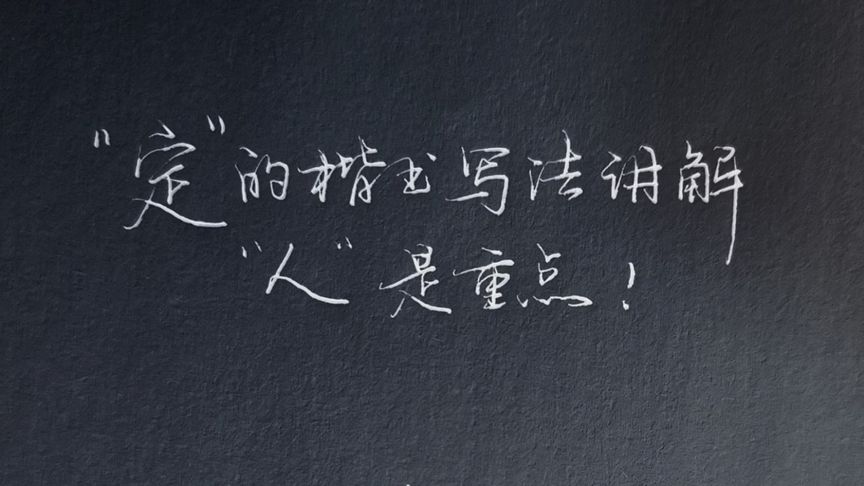 "定"的楷书写法讲解
"人"是重点！